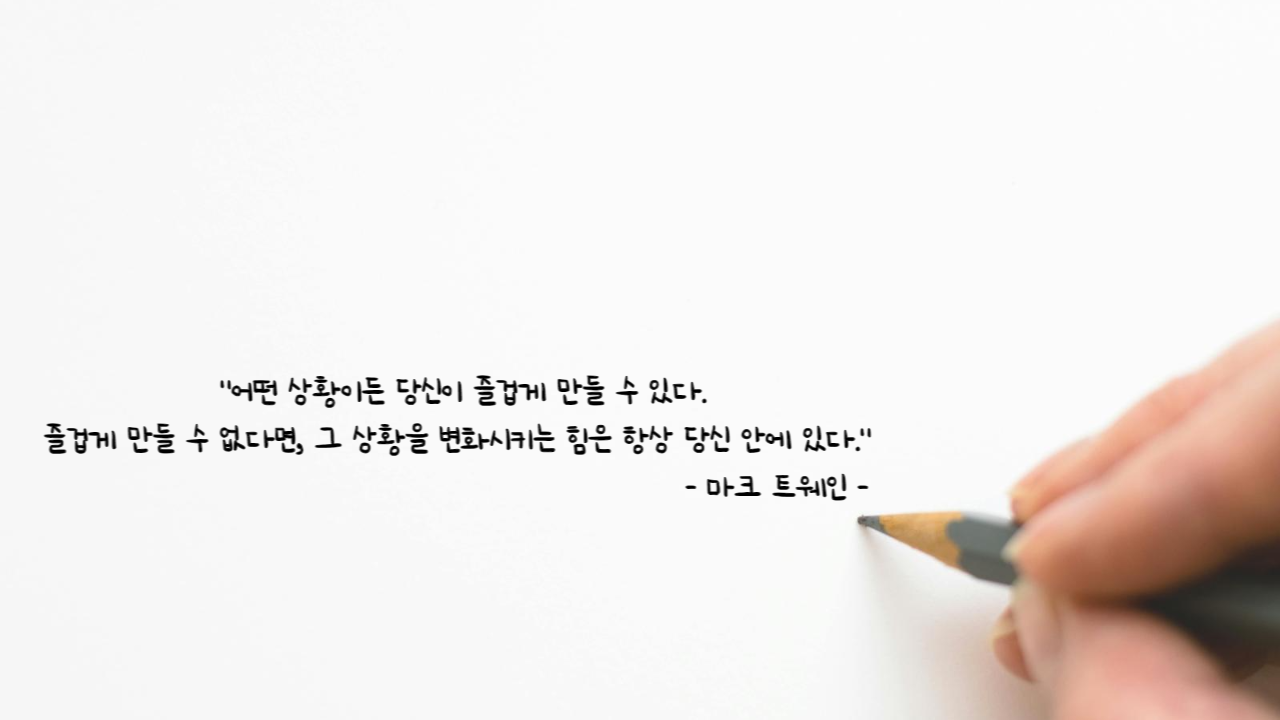 "어떤 상황이든 당신이 즐겁게 만들 수 있다.
즐겁게 만들 수 없다면, 그 상황을 변화시키는 힘은 항상 당신 안에 있다."
- 마크 트웨인 -